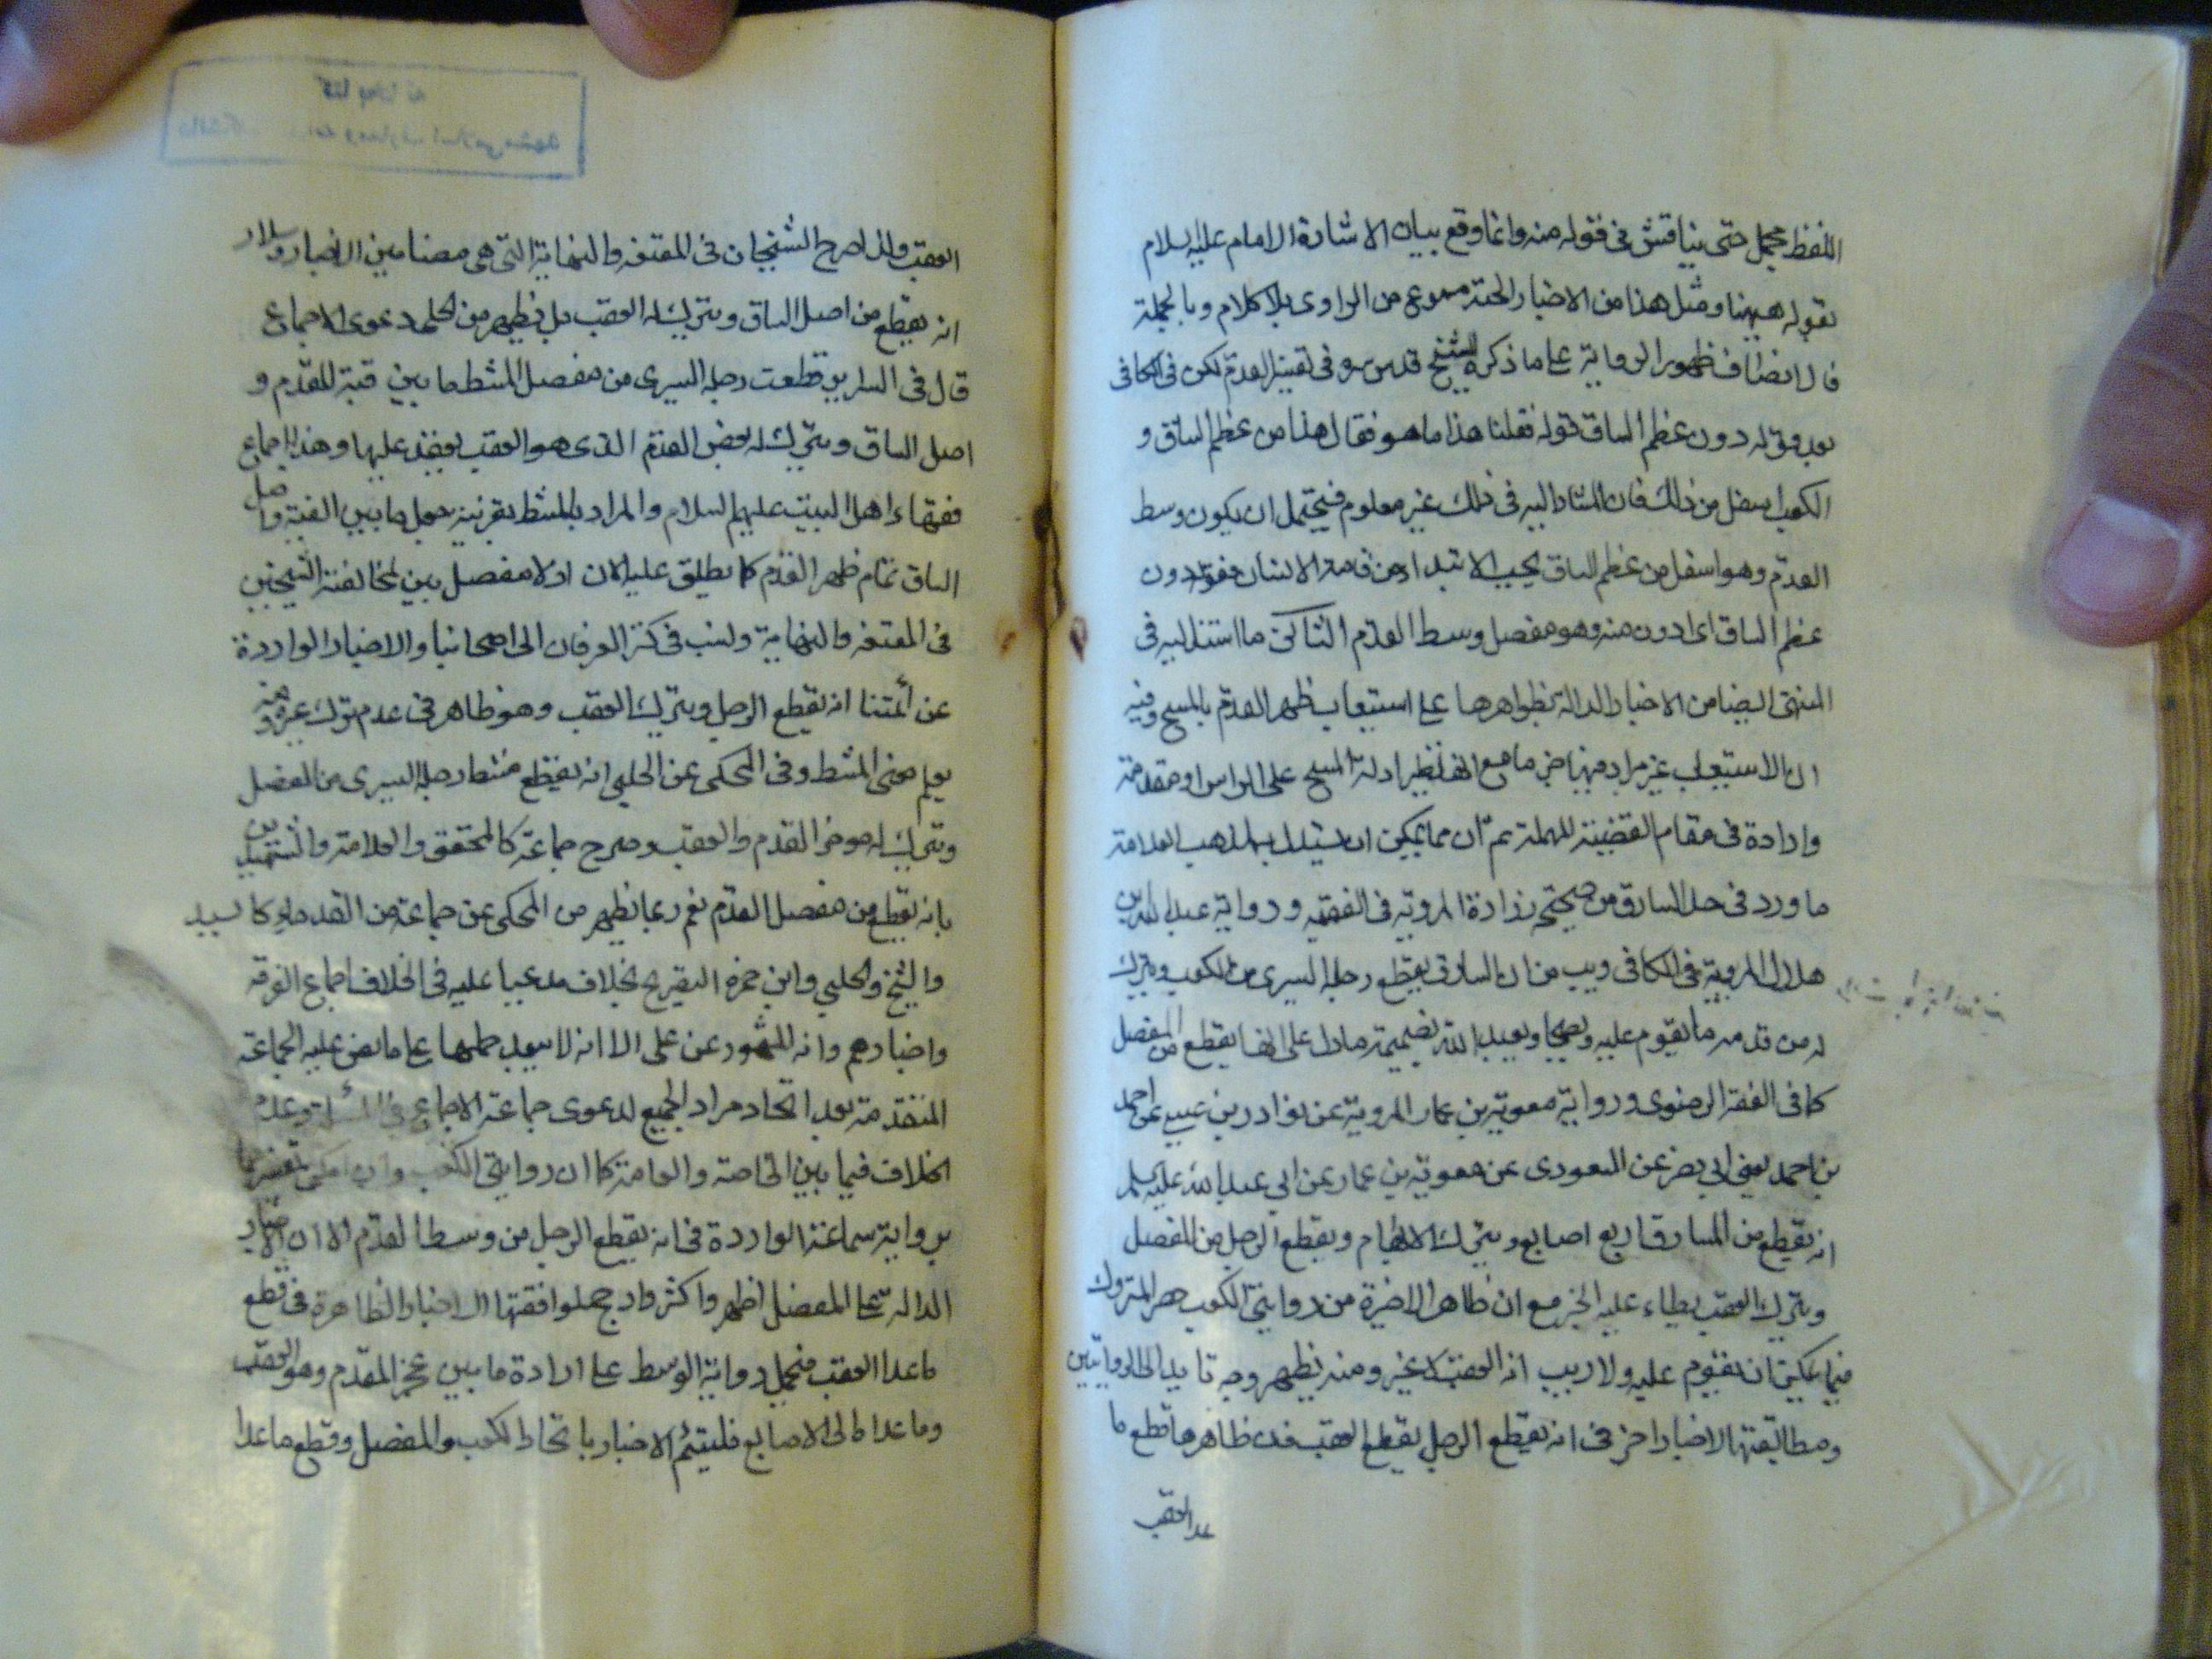 اللفظ مجمل حتى يناقش فى قوله منه وانما وقع بيان الاشارة الامام عليه السلام
بقوله هيهنا ومثل هذا من الاخبار الحسنة مسموع من الراوى بلا كلام وبالجملة
فالانصاف ظهور الرواية على ما ذكره الشيخ قدس سره فى تفسير القدم لكن فى الكافى
بعد قوله دون عظم الساق قوله فقلنا هذا ما هو فقال هذا من عظم الساق و
الكعب اسفل من ذلك فان المشار اليه فى ذلك غير معلوم فيحتمل ان يكون وسط
القدم وهو اسفل من عظم الساق بحسب الابتداء من قامة الانسان فهو دون
عظم الساق اى ادون منه وهو مفصل وسط القدم الثالث ما استند اليه فى
المنتهى ايضا من الاخبار الدالة بظواهرها على استيعاب ظهر القدم بالمسح وفيه
ان الاستيعاب غير مراد منها مع انها نظير ادلة المسح على الراس او مقدمه
وارادة فى مقام القضية المهملة ثم ان مما يمكن ان يستدل به لمذهب العلامة
ما ورد فى حد السارق من صحيحة زرارة المروية فى الفقيه ورواية عبد الله بن
هلال المروية فى الكافى ويب من ان السارق يقطع رجله اليسرى من الكعب ويترك
له من قدمه ما يقوم عليه ويصلى ويعبد الله بضميمة ما دل على انها يقطع من المفصل
كما فى الفقه الرضوى ورواية معوية بن عمار المروية عن نوادر بن عيسى عن احمد
بن محمد يعنى ابى بصر عن المسعودى عن معوية بن عمار عن ابى عبد الله عليه السلم
انه يقطع من السارق اربع اصابع ويترك الابهام ويقطع الرجل من المفصل
ويترك العقب يطاء عليه الخبر مع ان ظاهر الاخيرة من روايتى الكعب حصر المتروك
فيما يمكن ان يقوم عليه ولا ريب انه العقب لا غير ومنه يظهر وجه تاييد الروايتين
ومطابقتها لاخبار اخر فى انه يقطع الرجل يقطع العقب فان ظاهرها قطع ما
عدا العقب
العقب ولذا صرح الشيخان فى المقنعه والنهاية التى هى مضامين الاخبار وسلار
انه يقطع من اصل الساق ويترك له العقب بل يظهر من كلهم دعوى الاجماع
قال فى السراير قطعت رجله اليسرى من مفصل المشط ما بين قبة القدم و
اصل الساق ويترك له بعض القدم الذى هو العقب يعتمد عليها وهذا اجماع
فقهاء اهل البيت عليهم السلام والمراد بالمشط بقرينة جعل ما بين القبة واصل
الساق تمام ظهر القدم كما يطلق عليه الان اذ لا مفصل بين لمخالفته الشيخين
فى المقنعه والنهاية ونسب فى كنز العرفان الى اصحابنا والاخبار الواردة
عن ائمتنا انه تقطع الرجل ويترك العقب وهو ظاهر فى عدم ترك غيره ومنه
يعلم معنى المشط وفى المحكى عن الحلبى انه يقطع مشط رجله اليسرى من المفصل
ويترك له موخر القدم والعقب وصرح جماعة كالمحقق والعلامة والشهيدين
بانه يقطع من مفصل القدم نعم ربما يظهر من المحكى عن جماعة من القدماء كالسيد
والشيخ والحلبى وابن حمزة التصريح بخلاف مدعيا عليه فى الخلاف اجماع الفرقه
واخبارهم وانه المشهور عن على الا انه لا يبعد حملها على ما نص عليه الجماعة
المتقدمة بعد اتحاد مراد الجميع لدعوى جماعة الاجماع فى المسئلة وعدم
الخلاف فيما بين الخاصة والعامة كما ان روايتى الكعب وان امكن تفسيرها
برواية سماعة الواردة فى انه يقطع الرجل من وسط القدم الا ان الاخبار
الدالة على المفصل اظهر واكثر وارجح لموافقتها الاخبار الظاهرة فى قطع
ما عدا العقب فيحمل رواية الوسط على ارادة ما بين عجز المقدم وهو العقب
وما عدا الى الاصابع فليتئم الاخبار باتحاد الكعب والمفصل وقطع ما عدا